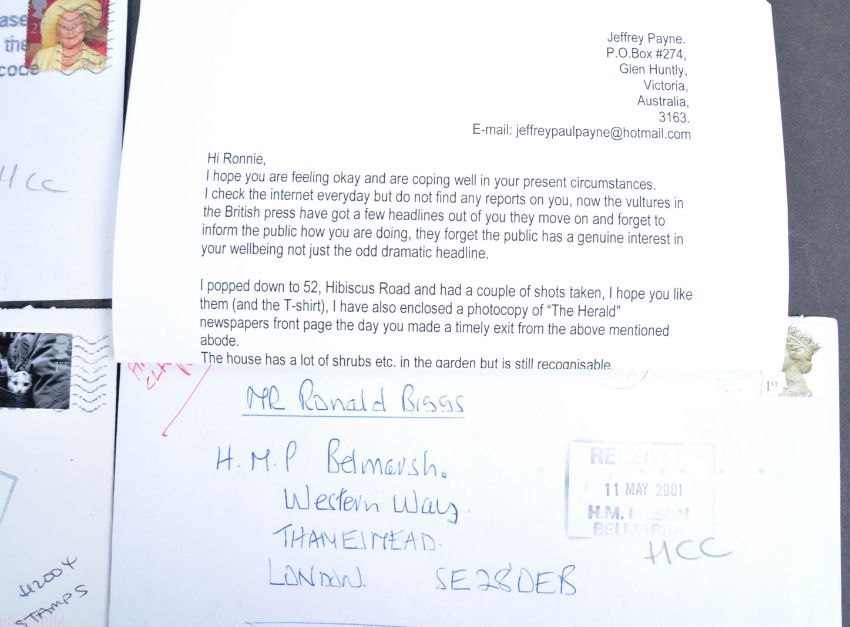 ase
the
code
HCC
Jeffrey Payne.
P.O.Box #274,
Glen Huntly,
Victoria,
Australia,
3163.
E-mail: jeffreypaulpayne@hotmail.com
Hi Ronnie,
I hope you are feeling okay and are coping well in your present circumstances.
I check the internet everyday but do not find any reports on you, now the vultures in
the British press have got a few headlines out of you they move on and forget to
inform the public how you are doing, they forget the public has a genuine interest in
your wellbeing not just the odd dramatic headline.
I popped down to 52, Hibiscus Road and had a couple of shots taken, I hope you like
them (and the T-shirt), I have also enclosed a photocopy of “The Herald”
newspapers front page the day you made a timely exit from the above mentioned
abode.
The house has a lot of shrubs etc. in the garden but is still recognisable.
1ST
MR Ronald Biggs
H.M.P Belmarsh.
Western Way
THAMESMEAD.
LONDON. SE28 0EB
11 MAY 2001
H.M. PRISON
BELMARSH
HCC
STAMPS